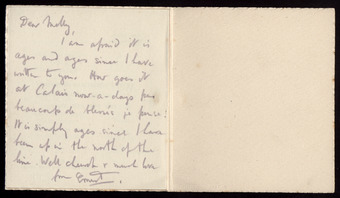 Dear Molly,
I am afraid it is
ages and ages since I have
written to you. How goes it
at Calais now-a-days pas
beaucoup de blessés je pense!
It is simply ages since I have
been up in the north of the
line. Well cheerio & much love
from Ernest.